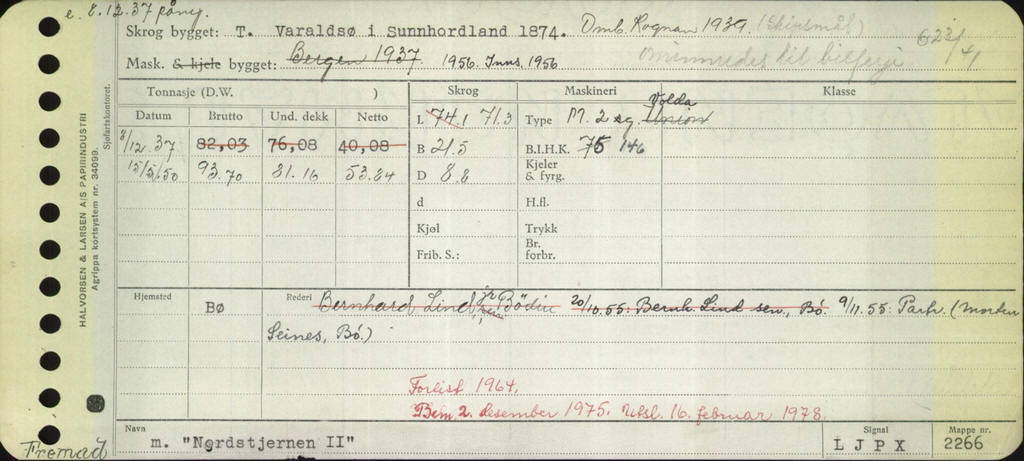 e. 8.12.37 påny.
Skrog bygget: T. Varaldsø i Sunnhordland 1874. Omb. Rognan 1939. (Skipsmål)
Mask. & kjele bygget: Bergen 1937. 1956. Inns. 1956 ominnredes til bilferje
Tonnasje (D.W. ) Skrog Maskineri Klasse
Datum Brutto Und. dekk Netto L 74.1 71.3 Type M. 2 sg. Union Volda
8/12.37 82,03 76,08 40,08 B 21.5 B.I.H.K. 75 146
15/5/50 93.70 81.16 53.84 D 8.8 Kjeler & fyrg.
d H.fl.
Kjøl Trykk
Frib. S.: Br. forbr.
Hjemsted BØ Rederi Bernhard Lind jr Bödin 20/10.55: Bernh. Lind sen., Bö. 9/11.55: Partr. (Morten
Seines, Bö.)
Forlist 1964.
Bem 2. desember 1975. Utsl. 16. februar 1978.
Navn m. "Nordstjernen II" Signal LJPX Mappe nr. 2266
Fremad
HALVORSEN & LARSEN A/S PAPIRINDUSTRI
Agrippa kortsystem nr. 34099. Sjøfartskontoret.